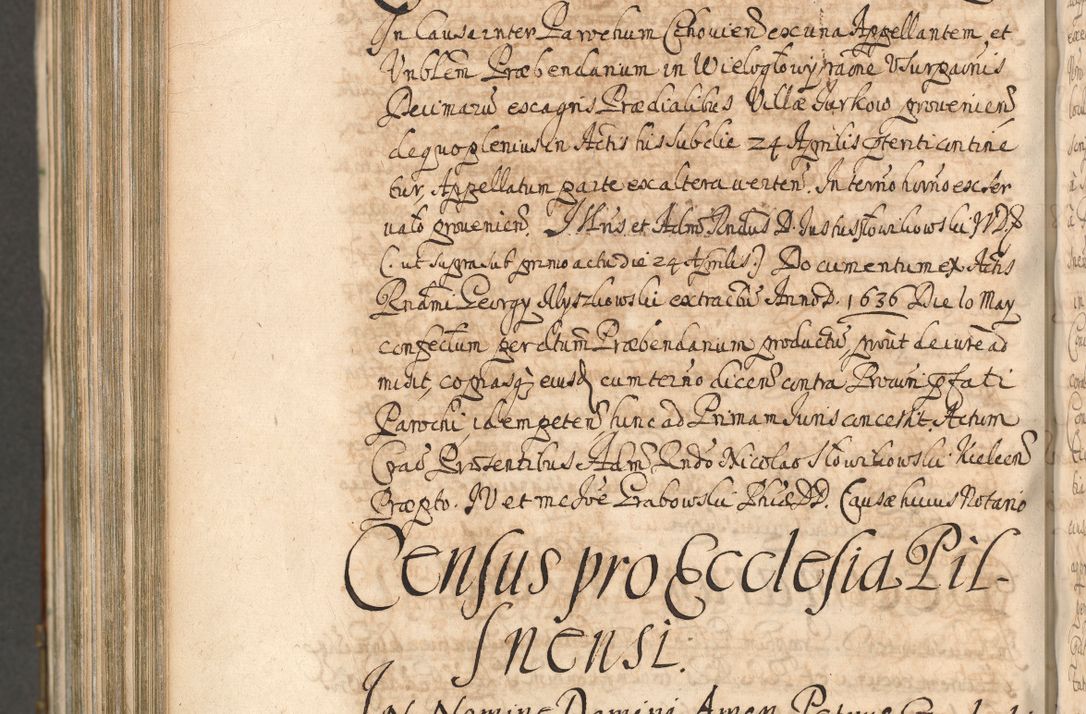 In Causa inter Parochum Cechovien̄ ex una Appellantem et
Vnblēm Præbendarium in Wielogłowy, raōne Vsurpaōnis
Decimarū ex agris Prædialibus Villæ Jurkow provenien̄
de quo plenius in Actis his sub die 24 Aprilis pn̄ti contine
tur, Appellatum parte ex altera verten̄. In termō hōrno ex ser
vatō provenien̄. Illris et Adm̄ Rndus D. Justus Słowikowski JVD
(: ut supra sub primo actu die 24 Aprilis :) Documentum ex Actis
Rndmi Georgy Myszkowski extractū Anno D. 1636 Die 10 May
confectum per dictum Præbendarium productū, prout de iure ad
misit, copiasq̨ eiusd cum termō dicen̄ contra Procurī pfati
Parochi, id em peten̄ hinc ad Primam Juris concessit. Actum
Crac Præsentibus Adm̄ Rndo Nicolao Słowikowski Kielecen̄
Præpto. JV et me Joē Grabowski Phiæ DD. Causæ huius Notario
Census pro Ecclesia Pil-
snensi.
In Nomine Domini Amen